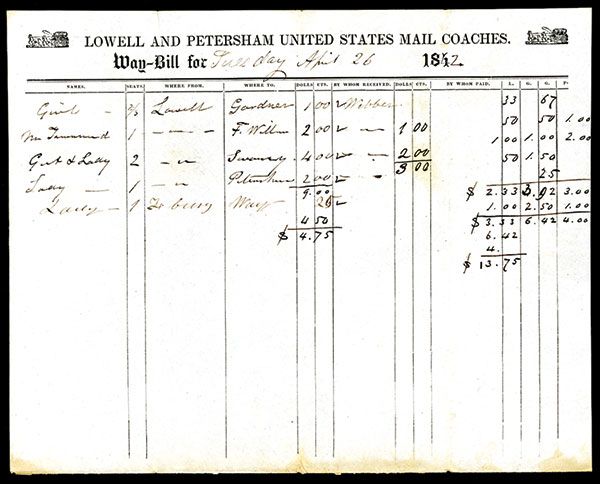 LOWELL AND PETERSHAM UNITED STATES MAIL COACHES.
Way-Bill for Tuesday April 26 1842
NAMES. SEATS. WHERE FROM. WHERE TO. DOLLS CTS. BY WHOM RECEIVED. DOLLS CTS. BY WHOM PAID. L. G. G. P
Girl - Lowell Gardner 1 00 Webber 33 67
1 — — — 2 00 — 1 00 50 50 1.00
1 00 1.00 2.00
Gent & Lady 2 — 4 00 — 2 00 50 1.50
3 00
Lady — 1 — Petersham 2 00 — 25
9.00 $ 2.33 3.92 3.00
Lady — 1 Way 25 1.00 2.50 1.00
4 50 $ 3.33 6.42 4.00
$ 4.75 6.42
4.
$ 13.75